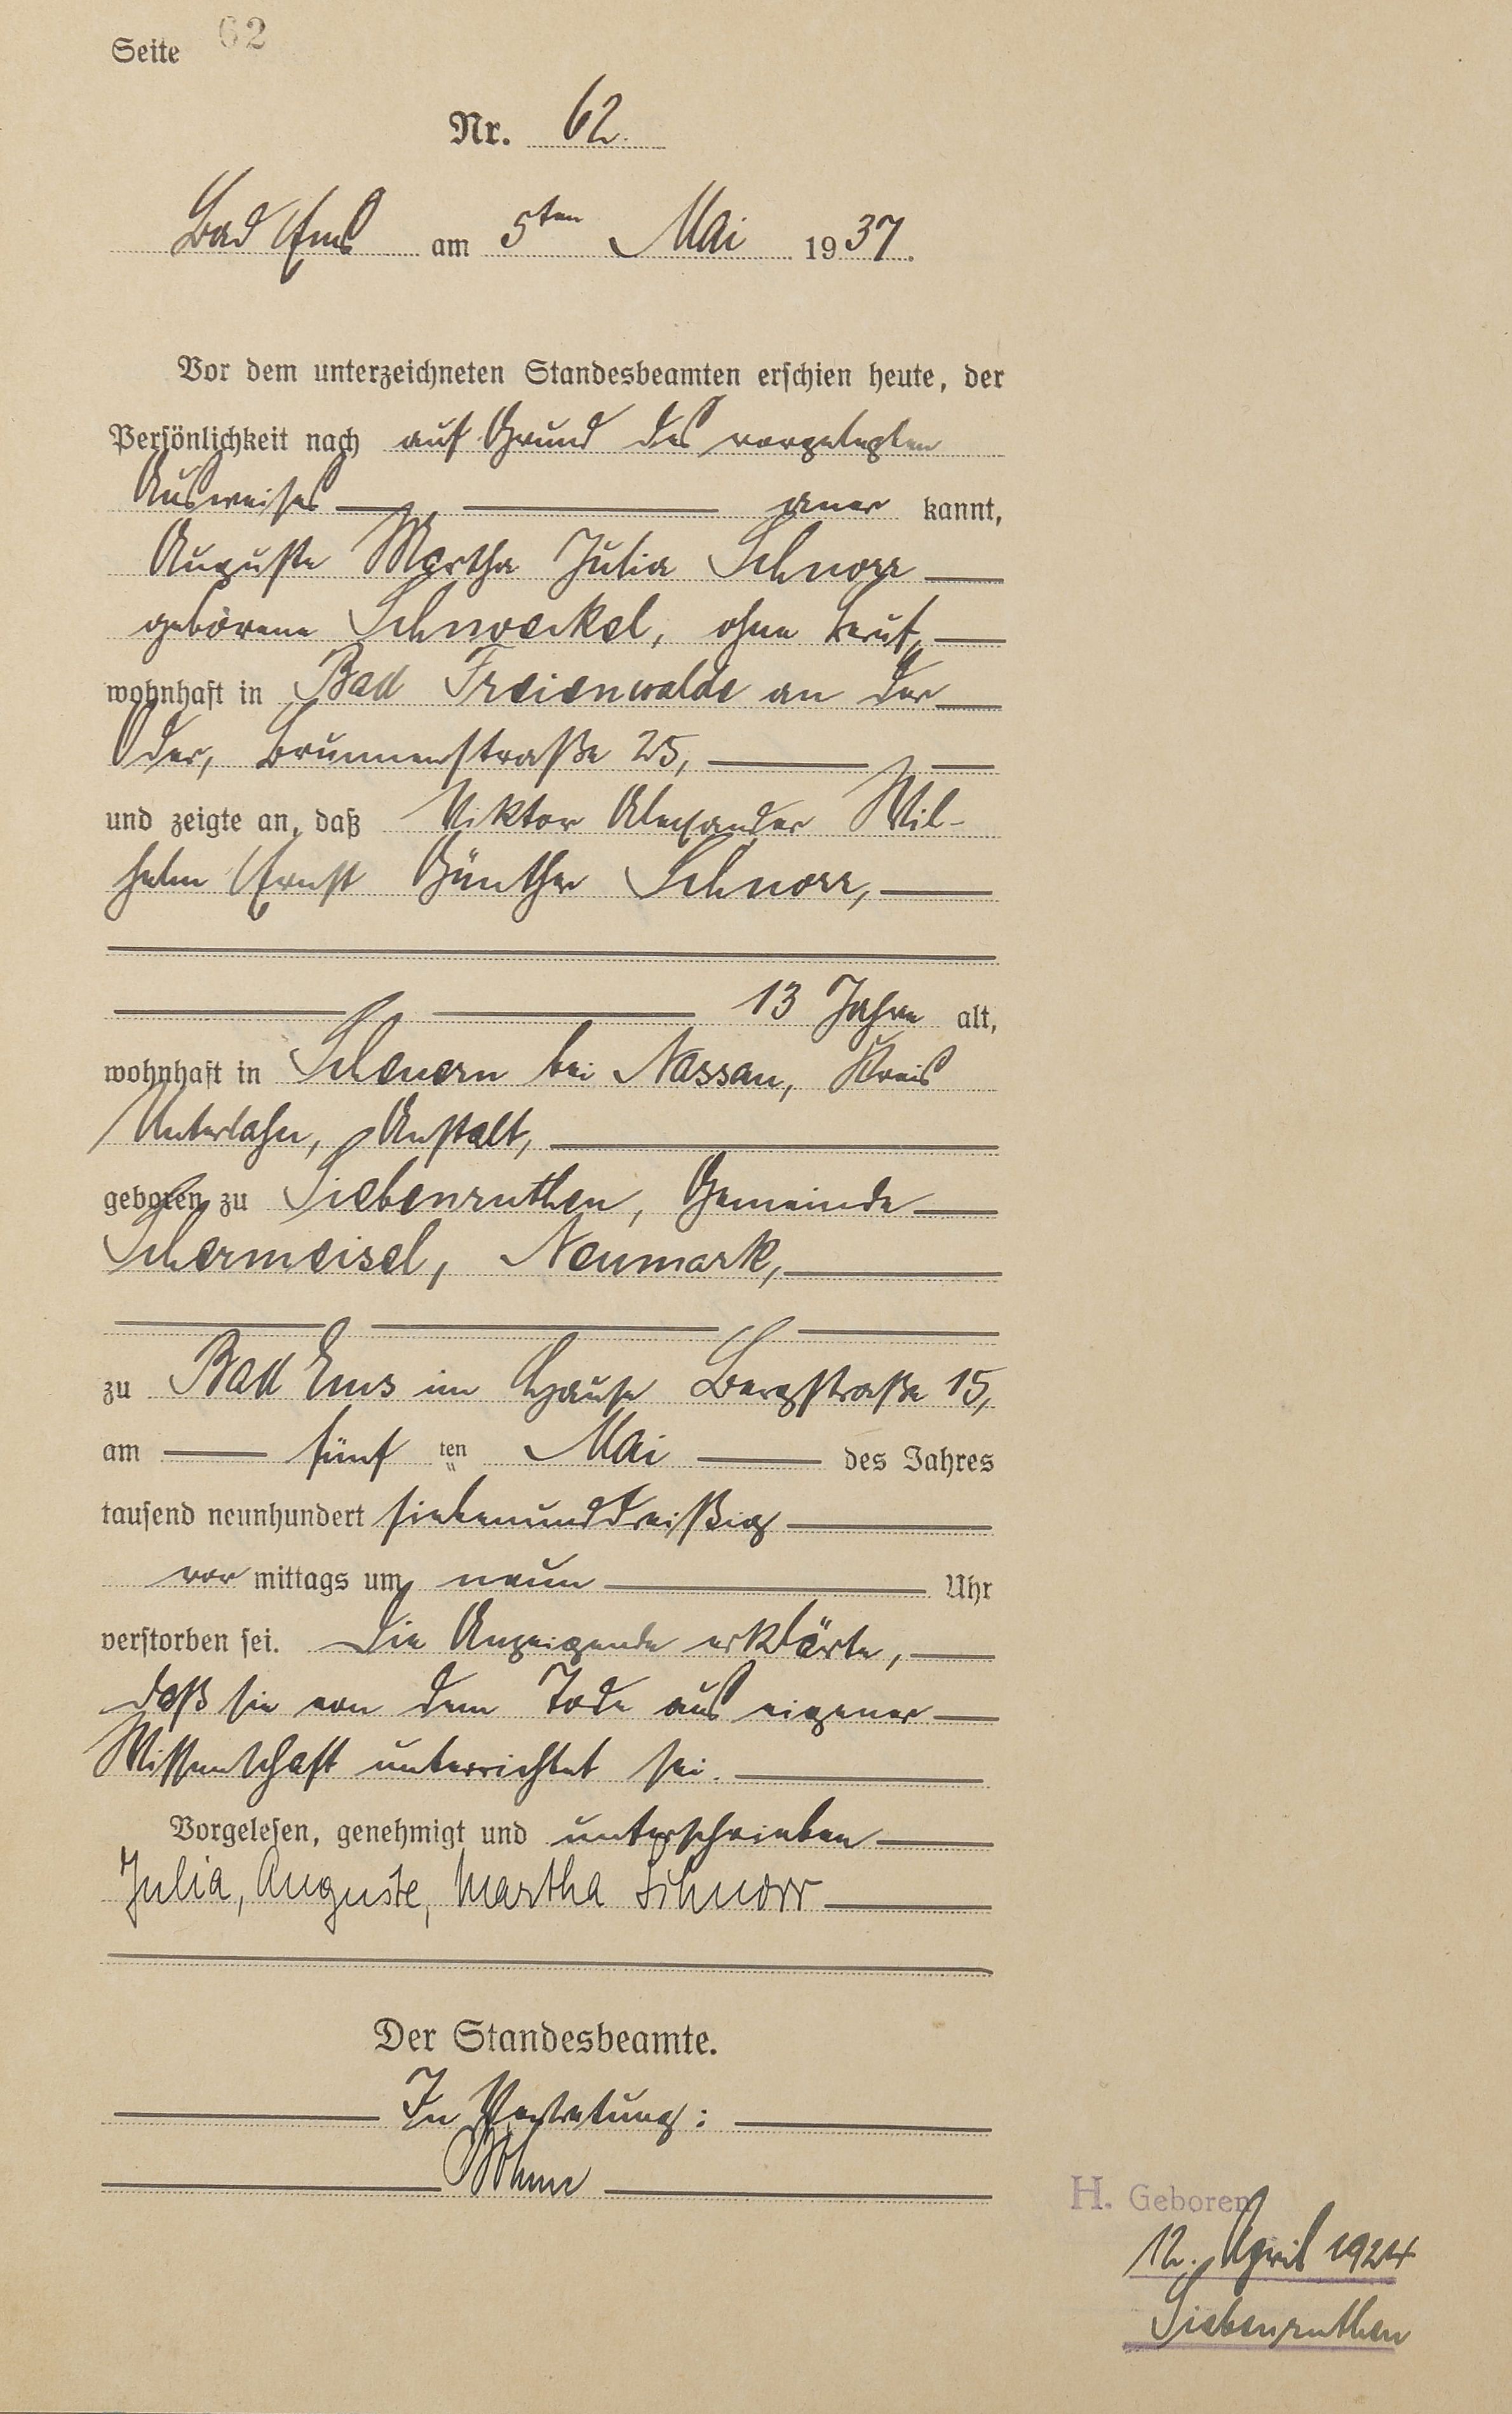 Seite 62
Nr. 62.
Bad Ems am 5ten Mai 1937.
Vor dem unterzeichneten Standesbeamten erschien heute, der
Persönlichkeit nach auf Grund des vorgelegten
Ausweises aner kannt,
Auguste Martha Julia Schnorr
geborene Schnoeckel, ohne Beruf,
wohnhaft in Bad Freienwalde an der
Oder, Brunnenstraße 25,
und zeigte an, daß Viktor Alexander Wil-
helm Ernst Günther Schnorr,
13 Jahre alt,
wohnhaft in Scheuern bei Nassau, Kreis
Unterlahn, Anstalt,
geboren zu Siebenruthen, Gemeinde
Schermeisel, Neumark,
zu Bad Ems im Hause Bergstraße 15,
am fünf ten Mai des Jahres
tausend neunhundert siebenunddreißig
vor mittags um neun Uhr
verstorben sei. Die Anzeigende erklärte,
daß sie von dem Tode aus eigener
Wissenschaft unterrichtet sei.
Vorgelesen, genehmigt und unterschrieben
Julia, Auguste, Martha Schnorr
Der Standesbeamte.
In Vertretung:
Böhme
H. Geboren
12. April 1924
Siebenruthen